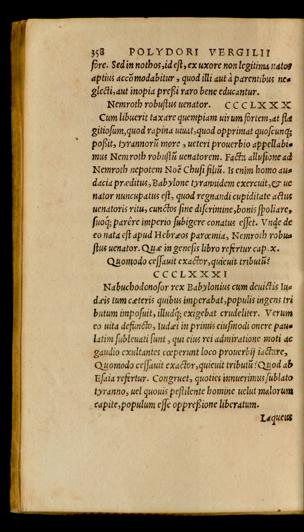 358 POLYDORI VERGILII
fore. Sed in nothos, id est, ex uxore non legitima natos
aptius accõmodabitur, quod illi aut à parentibus ne-
glecti, aut inopia pressi raro bene educantur.
Nemroth robustus uenator. CCCLXXX
Cum libuerit taxare quempiam uirum fortem, at fla
gitiosum, quod rapina uiuat, quod opprimat quoscunq;
possit, tyrannorũ more, ueteri prouerbio appellabi-
mus Nemroth robustũ uenatorem. Facta allusione ad
Nemroth nepotem Noë Chusi filiũ. Is enim homo au-
dacia præditus, Babylone tyrannidem exercuit, & ue
nator nuncupatus est, quod regnandi cupiditate actus
uenatoris ritu, cunctos sine discrimine, bonis spoliare,
suoq; parére imperio subigere conatus esset. Vnde de
eo nata est apud Hebræos parœmia, Nemroth robu-
stus uenator. Quæ in genesis libro refertur cap. x.
Quomodo cessauit exactor, quieuit tributũ?
CCCLXXXI
Nabuchodonosor rex Babylonius cum deuictis Iu-
dæis tum cæteris quibus imperabat, populis ingens tri
butum imposuit, illudq; exigebat crudeliter. Verum
eo uita defuncto, Iudæi in primis eiusmodi onere pau-
latim subleuati sunt, qui eius rei admiratione moti ac
gaudio exultantes cœperunt loco prouerbij iactare,
Quomodo cessauit exactor, quieuit tributũ? Quod ab
Esaia refertur. Congruet, quoties innuerimus sublato
tyranno, uel quouis pestilente homine uelut malorum
capite, populum esse oppressione liberatum.
Laqueus